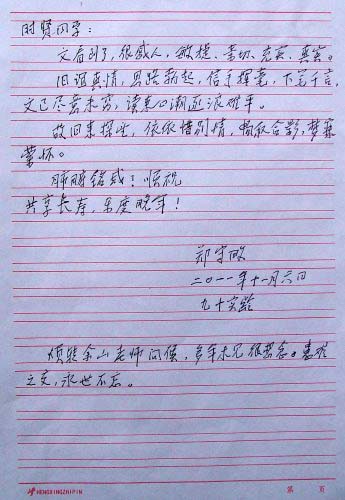 时贤同学：
文看到了，很感人，敏捷、亲切、充实、真实。
旧谊真情，思路新起，信手挥毫，下笔千言，
文已尽意未穷，读来心潮逐浪难平。
故回来探望，依依惜别情，摄取合影，梦寐
萦怀。
肺腑铭感！顺祝
共享长寿，乐度晚年！
郑守
二〇一一年十一月六日
九十实龄
烦转余山老师问候，多年未见很想念。患难
之交，永世不忘。
HENGXINGZHIPIN
第 页